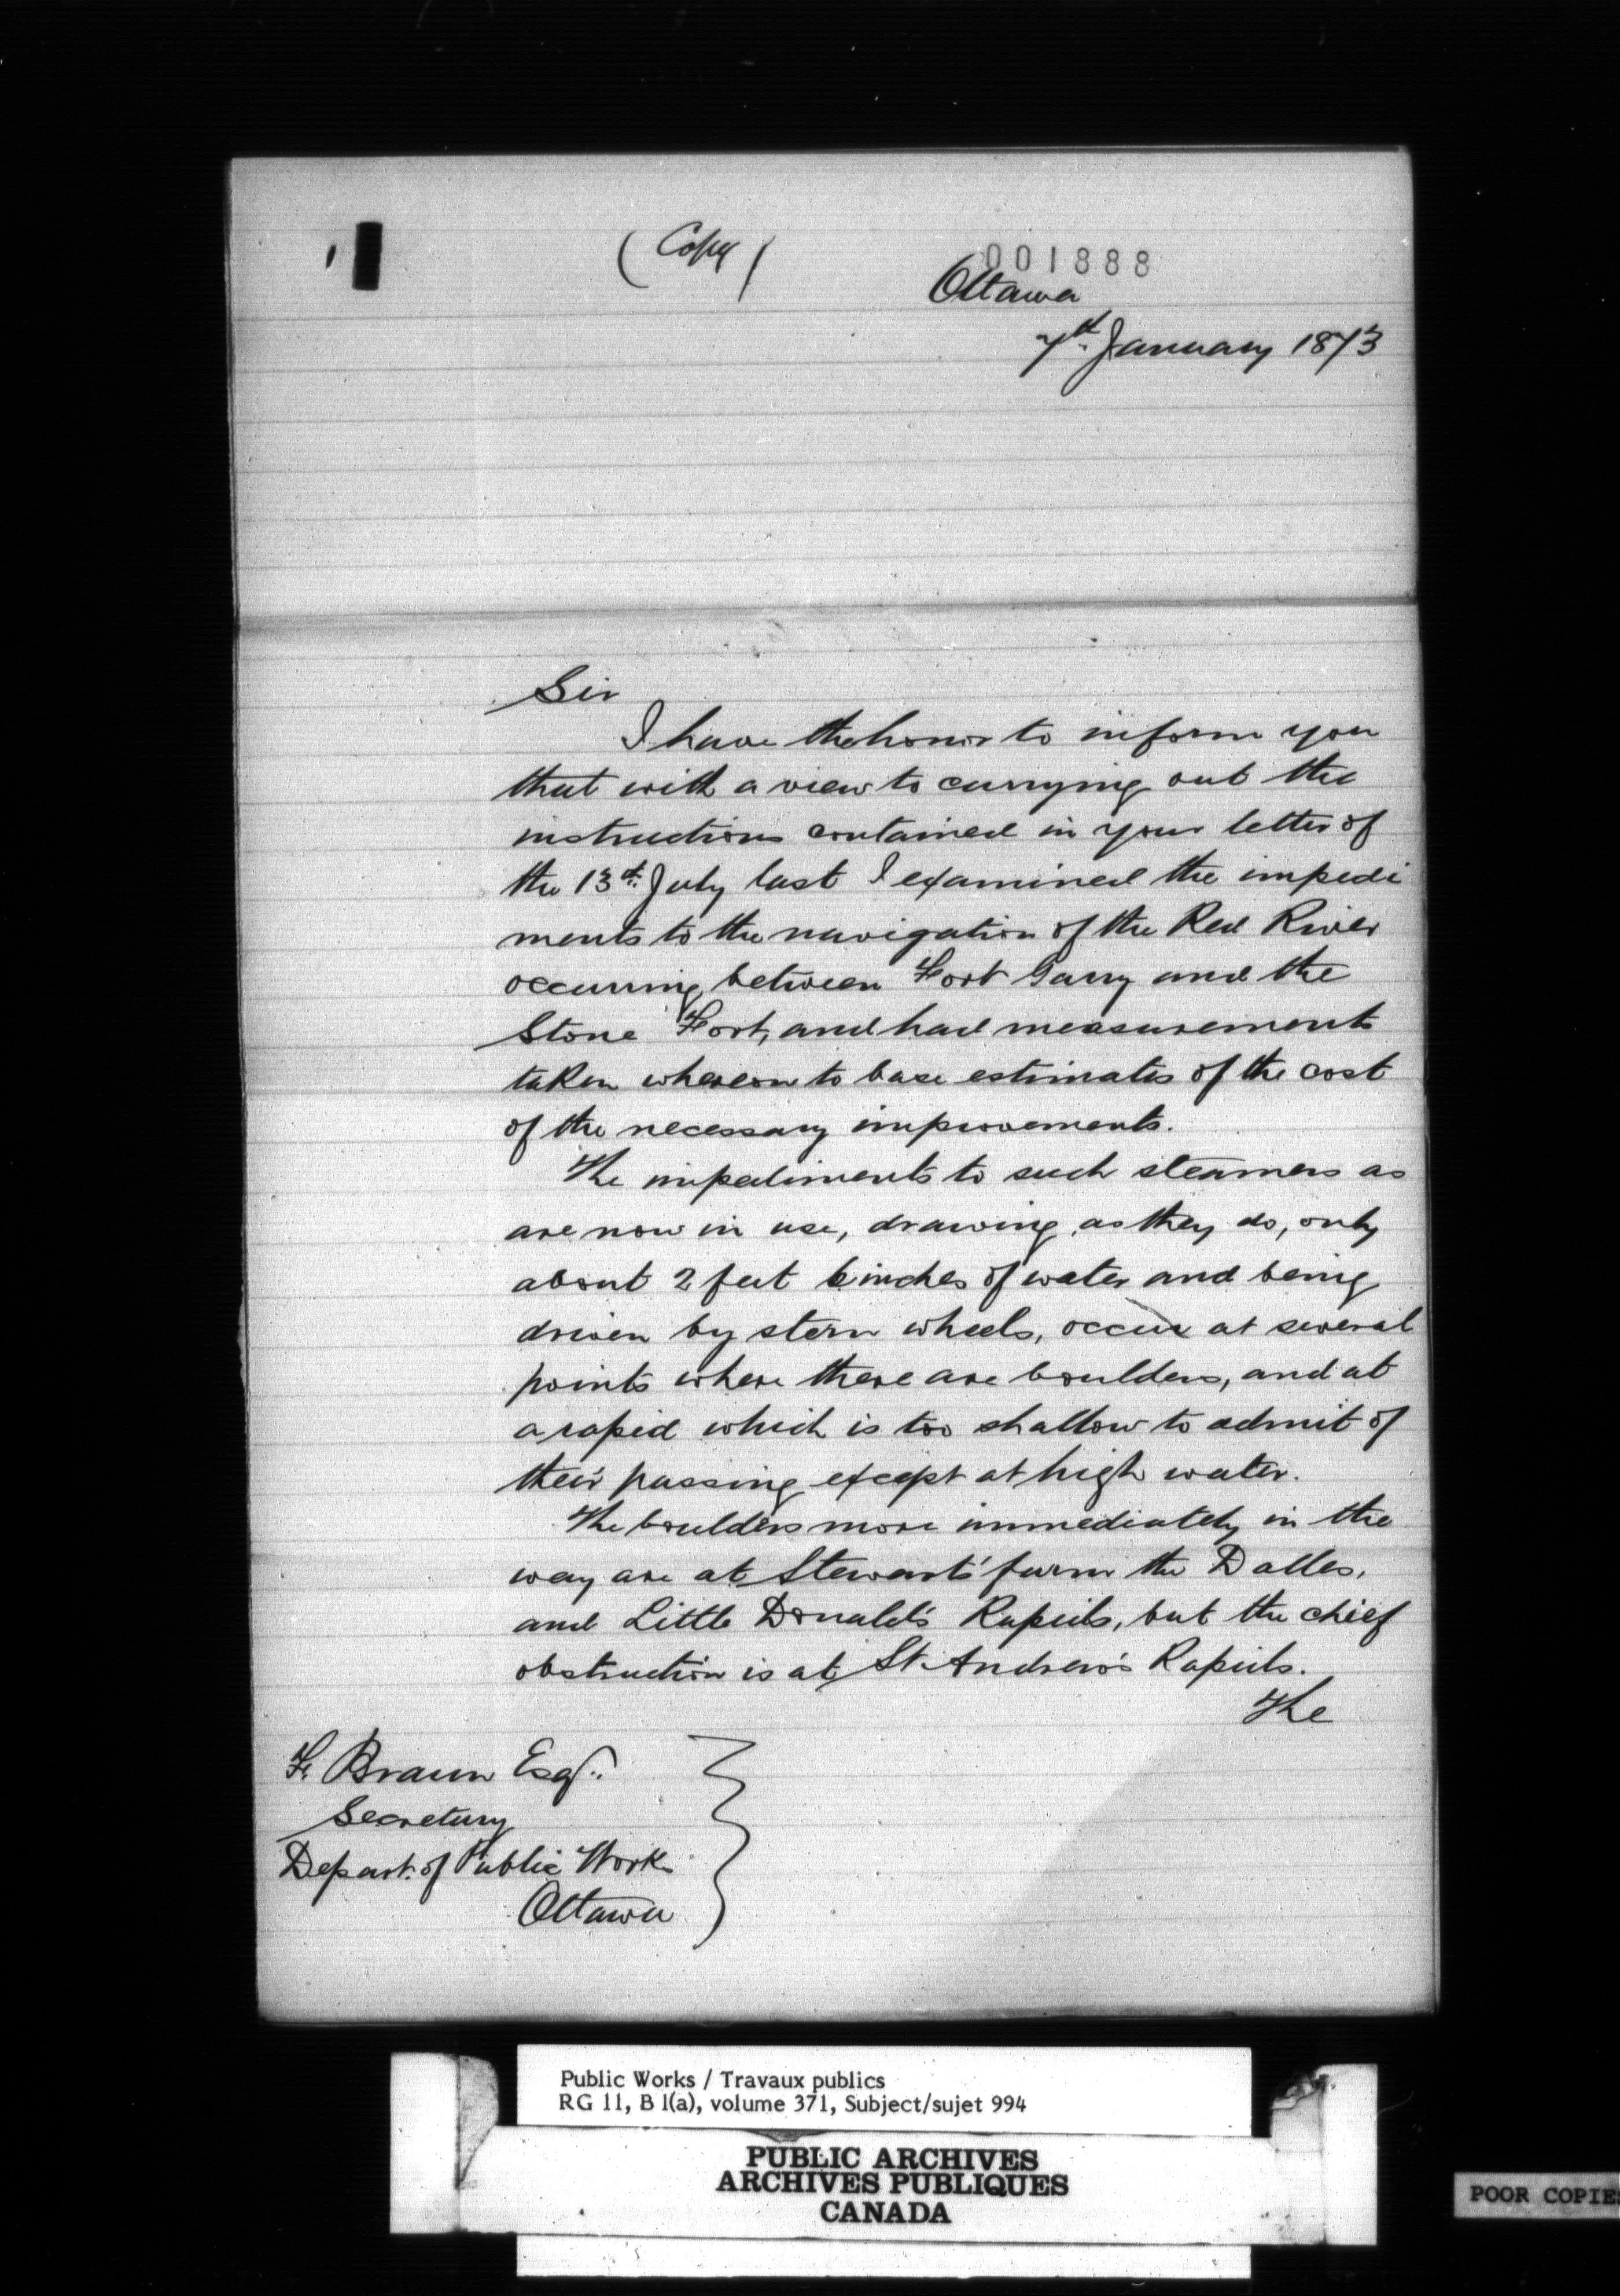 (Copy)
001888
Ottawa
7th January 1873
Sir
I have the honor to inform you
that with a view to carrying out the
instructions contained in your letter of
the 13th July last I examined the impedi
ments to the navigation of the Red River
occurring between Fort Garry and the
Stone Fort, and had measurements
taken whereon to base estimates of the cost
of the necessary improvements.
The impediments to such steamers as
are now in use, drawing, as they do, only
about 2 feet 6 inches of water and being
driven by stern wheels, occur at several
points where there are boulders, and at
a rapid which is too shallow to admit of
their passing except at high water.
The boulders more immediately in the
way are at Stewarts' farm the Dalles,
and Little Donald's Rapids, but the chief
obstruction is at St. Andrew's Rapids.
The
F. Braun Esq.
Secretary
Depart. of Public Works
Ottawa
Public Works / Travaux publics
RG 11, B 1(a), volume 371, Subject/sujet 994
PUBLIC ARCHIVES
ARCHIVES PUBLIQUES
CANADA
POOR COPIES